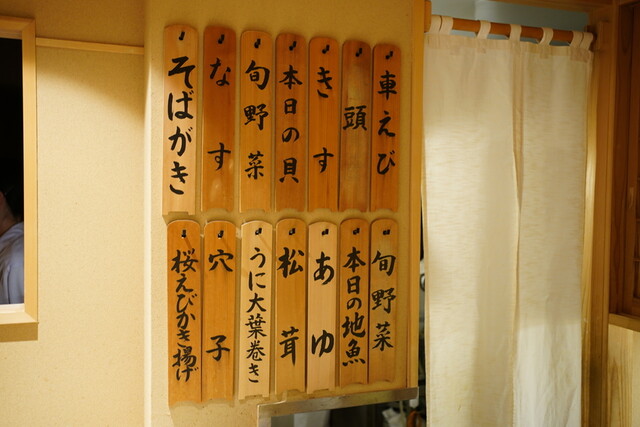 車えび
頭
きす
本日の貝
旬野菜
なす
そばがき
旬野菜
本日の地魚
あゆ
松茸
うに大葉巻き
穴子
桜えびかき揚げ